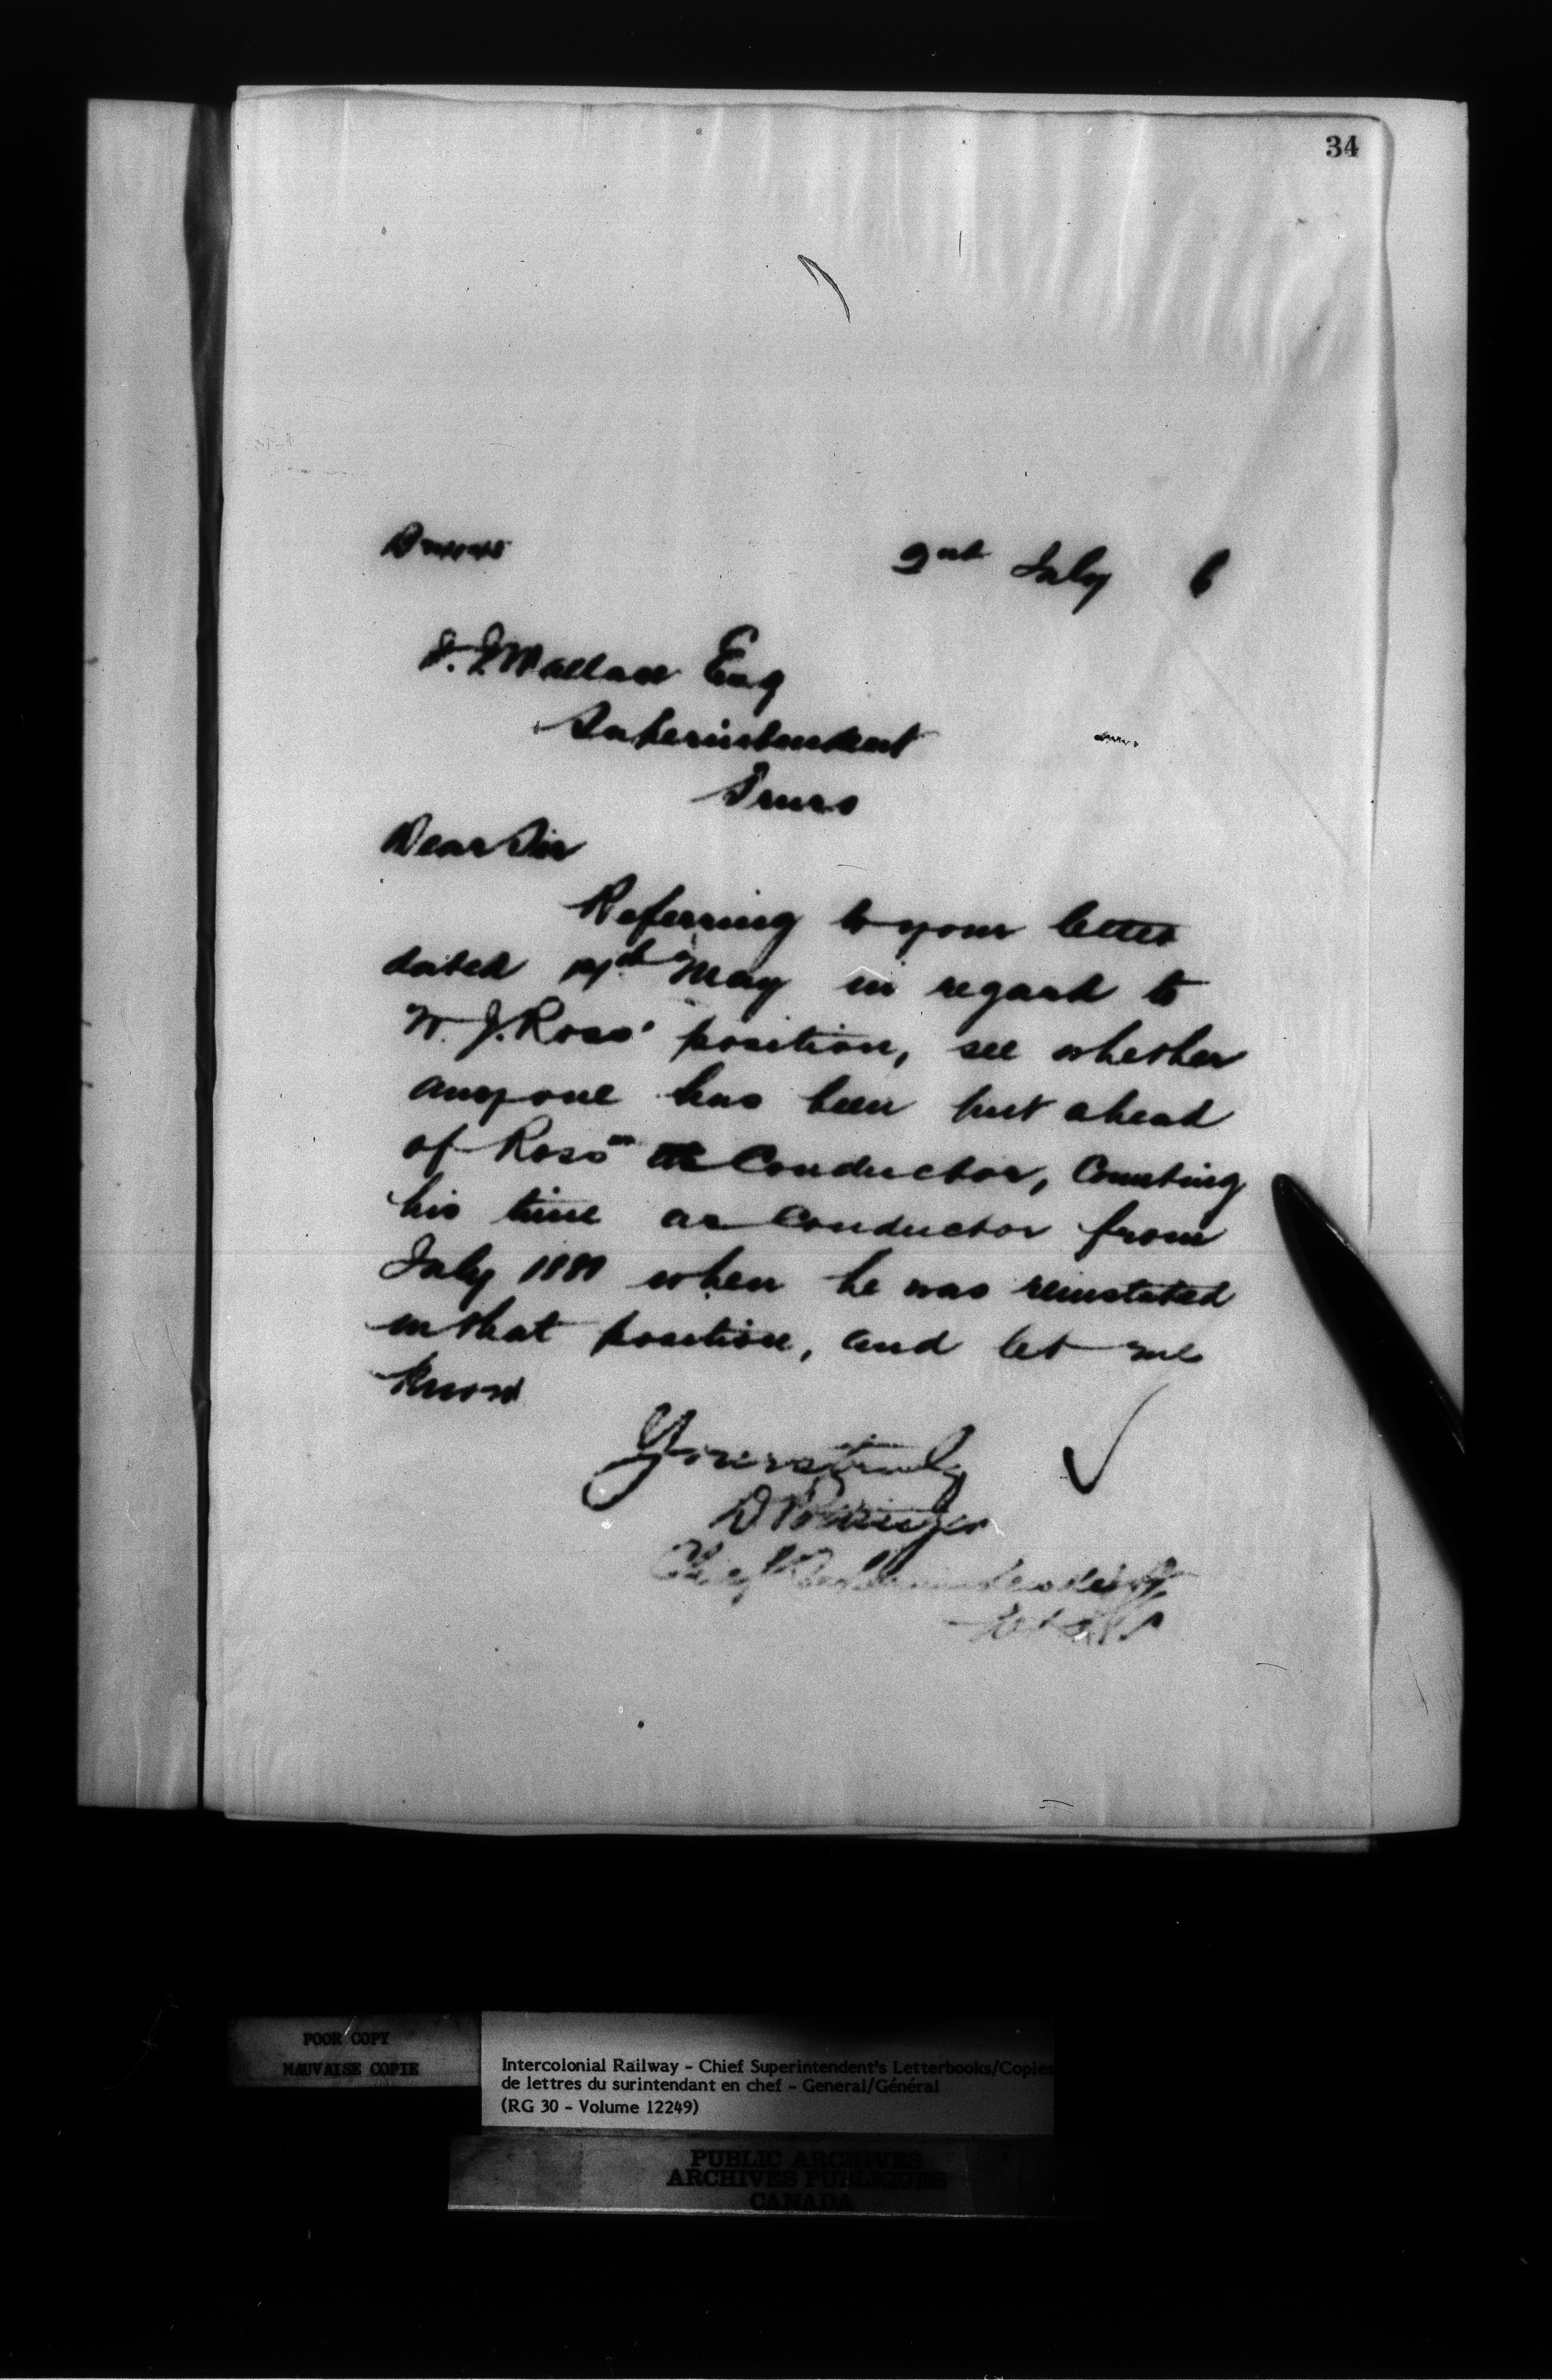 34
2nd July 6
J. J. Wallace Esq
Superintendent
Truro
Dear Sir
Referring to your letter
dated May in regard to
W. J. Ross' position, see whether
anyone has been put ahead
of Ross as Conductor, Counting
his time as Conductor from
July 1880 when he was reinstated
in that position, and let me
know
Yours truly
D Pottinger
Chief Superintendent
POOR COPY
MAUVAISE COPIE
Intercolonial Railway - Chief Superintendent's Letterbooks/Copies
de lettres du surintendant en chef - General/Général
(RG 30 - Volume 12249)
PUBLIC ARCHIVES
ARCHIVES PUBLIQUES
CANADA